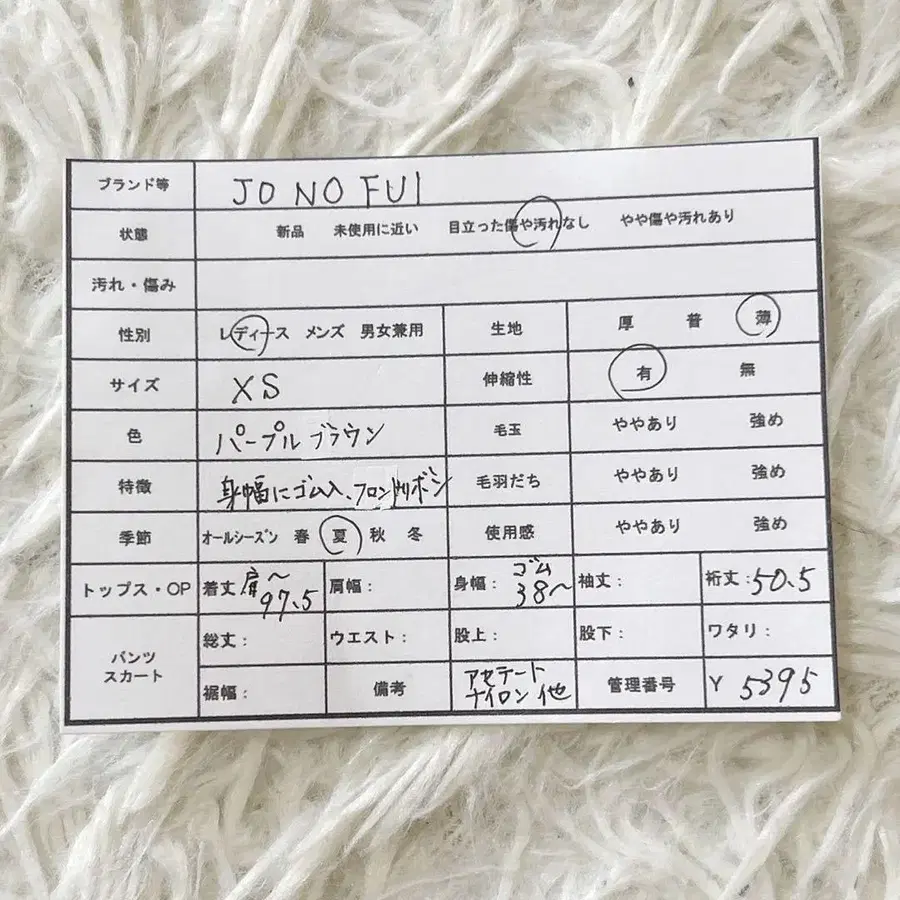 ブランド等 JO NO FUI
状態 新品 未使用に近い 目立った傷や汚れなし やや傷や汚れあり
汚れ・傷み
性別 レディース メンズ 男女兼用 生地 厚 普 薄
サイズ XS 伸縮性 有 無
色 パープルブラウン 毛玉 ややあり 強め
特徴 身幅にゴム入、フロントリボン 毛羽だち ややあり 強め
季節 オールシーズン 春 夏 秋 冬 使用感 ややあり 強め
トップス・OP 着丈 肩〜 97.5 肩幅: 身幅: ゴム 38〜 袖丈: 裄丈:50.5
パンツ スカート 総丈: ウエスト: 股上: 股下: ワタリ:
裾幅: 備考 アセテート ナイロン他 管理番号 Y 5395